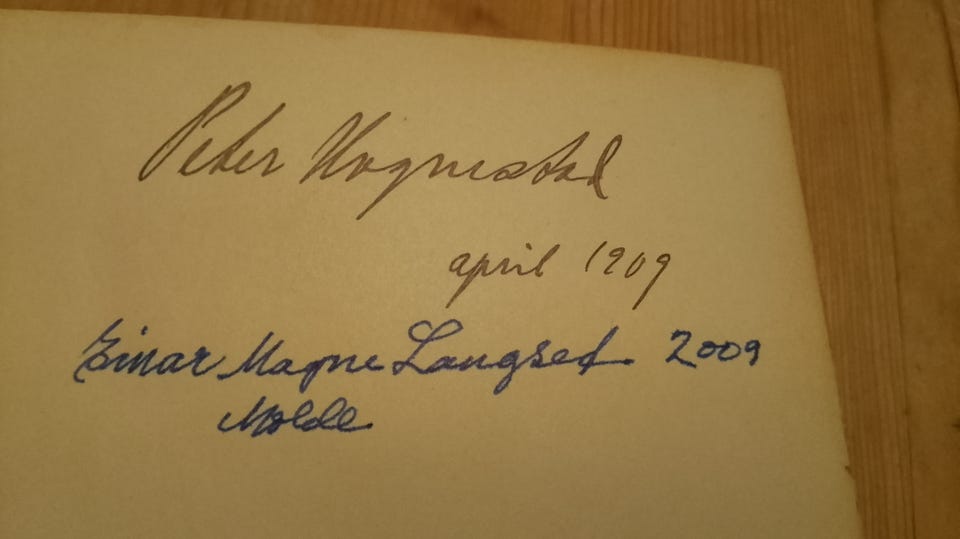 Peter Hognestad
april 1909
Einar Magne Langset 2009
Molde